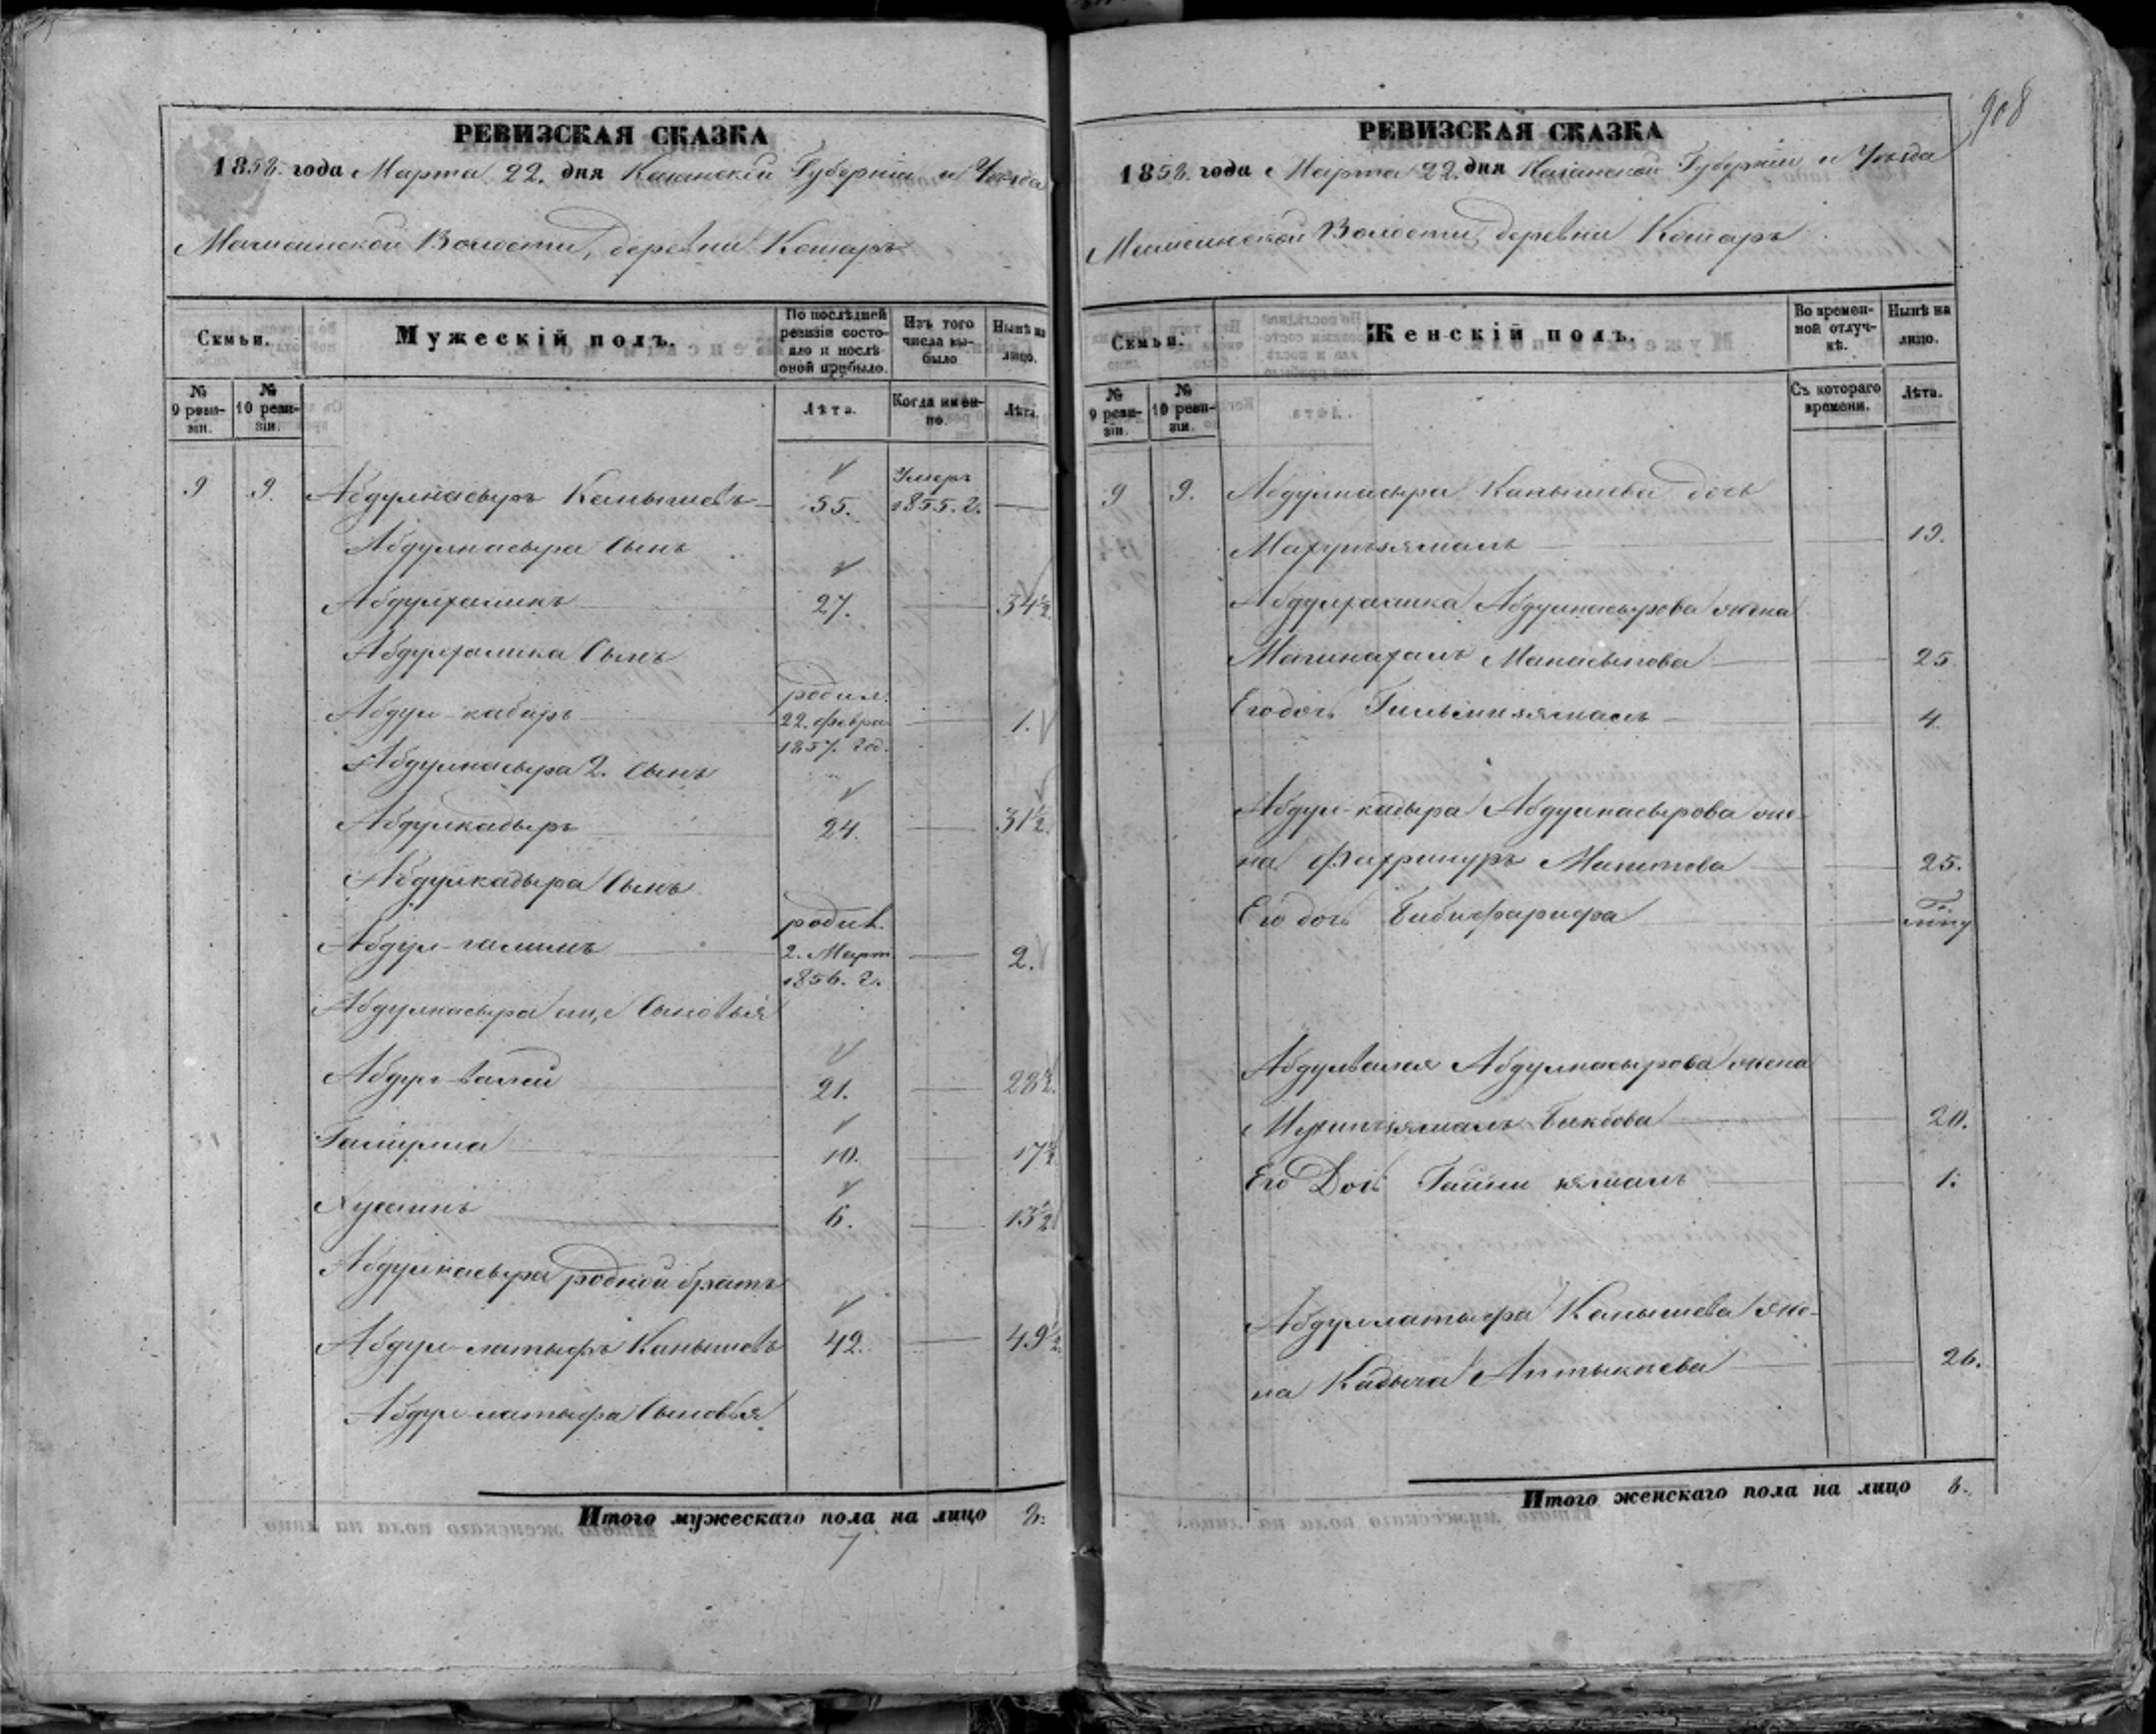 908
РЕВИЗСКАЯ СКАЗКА
1858. года Марта 22. дня Казанской Губерніи и Уѣзда
Волости, деревни Кошаръ
Семьи.
Мужескій полъ.
По послѣдней ревизіи состояло и послѣ оной прибыло.
Изъ того числа выбыло
Нынѣ на лицо.
№ 9 ревизіи.
№ 10 ревизіи.
Лѣта.
Когда именно.
Лѣта.
9 9. Абдулнасыръ Канышевъ 55. Умеръ 1855. г.
Абдулнасыра Сынъ
Абдулхаликъ 27. 34½
Абдулхалика Сынъ
Абдул-кабиръ родил. 22. февра 1857. год. 1.
Абдулнасыра 2. Сынъ
Абдулкадыръ 24. 31½
Абдулкадыра Сынъ
Абдул-галимъ родил. 2. Март 1856. г. 2.
Абдулнасыра еще Сыновья
Абдул-валей 21. 28½
10. 17½
Хусаинъ 6. 13½
Абдулнасыра родной братъ
Абдул-латыфъ Канышевъ 42. 49½
Абдул-латыфа Сыновья
Итого мужескаго пола на лицо 8.
7
РЕВИЗСКАЯ СКАЗКА
1858. года Марта 22. дня Казанской Губерніи и Уѣзда
Волости, деревни Кошаръ
Семьи.
Женскій полъ.
Во временной отлучкѣ.
Нынѣ на лицо.
№ 9 ревизіи.
№ 10 ревизіи.
Съ котораго времени.
Лѣта.
9 9. Абдулнасыра Канышева дочь
13.
Абдулхалика Абдулнасырова жена
25.
Его дочь 4.
Абдул-кадыра Абдулнасырова же-
на Фахринуръ 25.
Его дочь Бибишарифа
Абдулвалея Абдулнасырова жена
20.
Его Дочь 1.
Абдуллатыфа Канышева же-
на 26.
Итого женскаго пола на лицо 8.